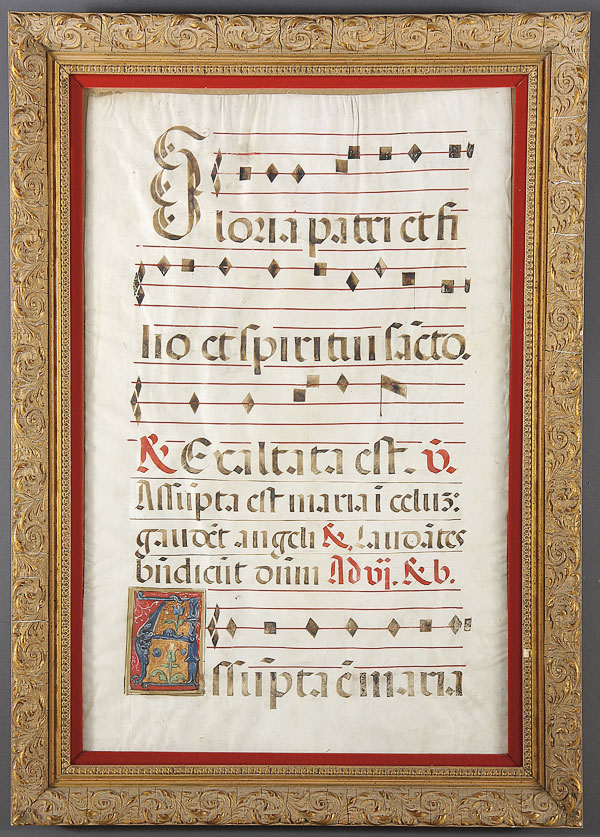 Gloria patri et fi
lio et spiritui sãcto.
℟ Exaltata est. ℣.
Assũpta est maria ĩ celuꝫ:
gaudẽt angeli ℟. Laudãtes
bñdicũt dñm Ad vj. ℟. b.
Assũpta ẽ maria